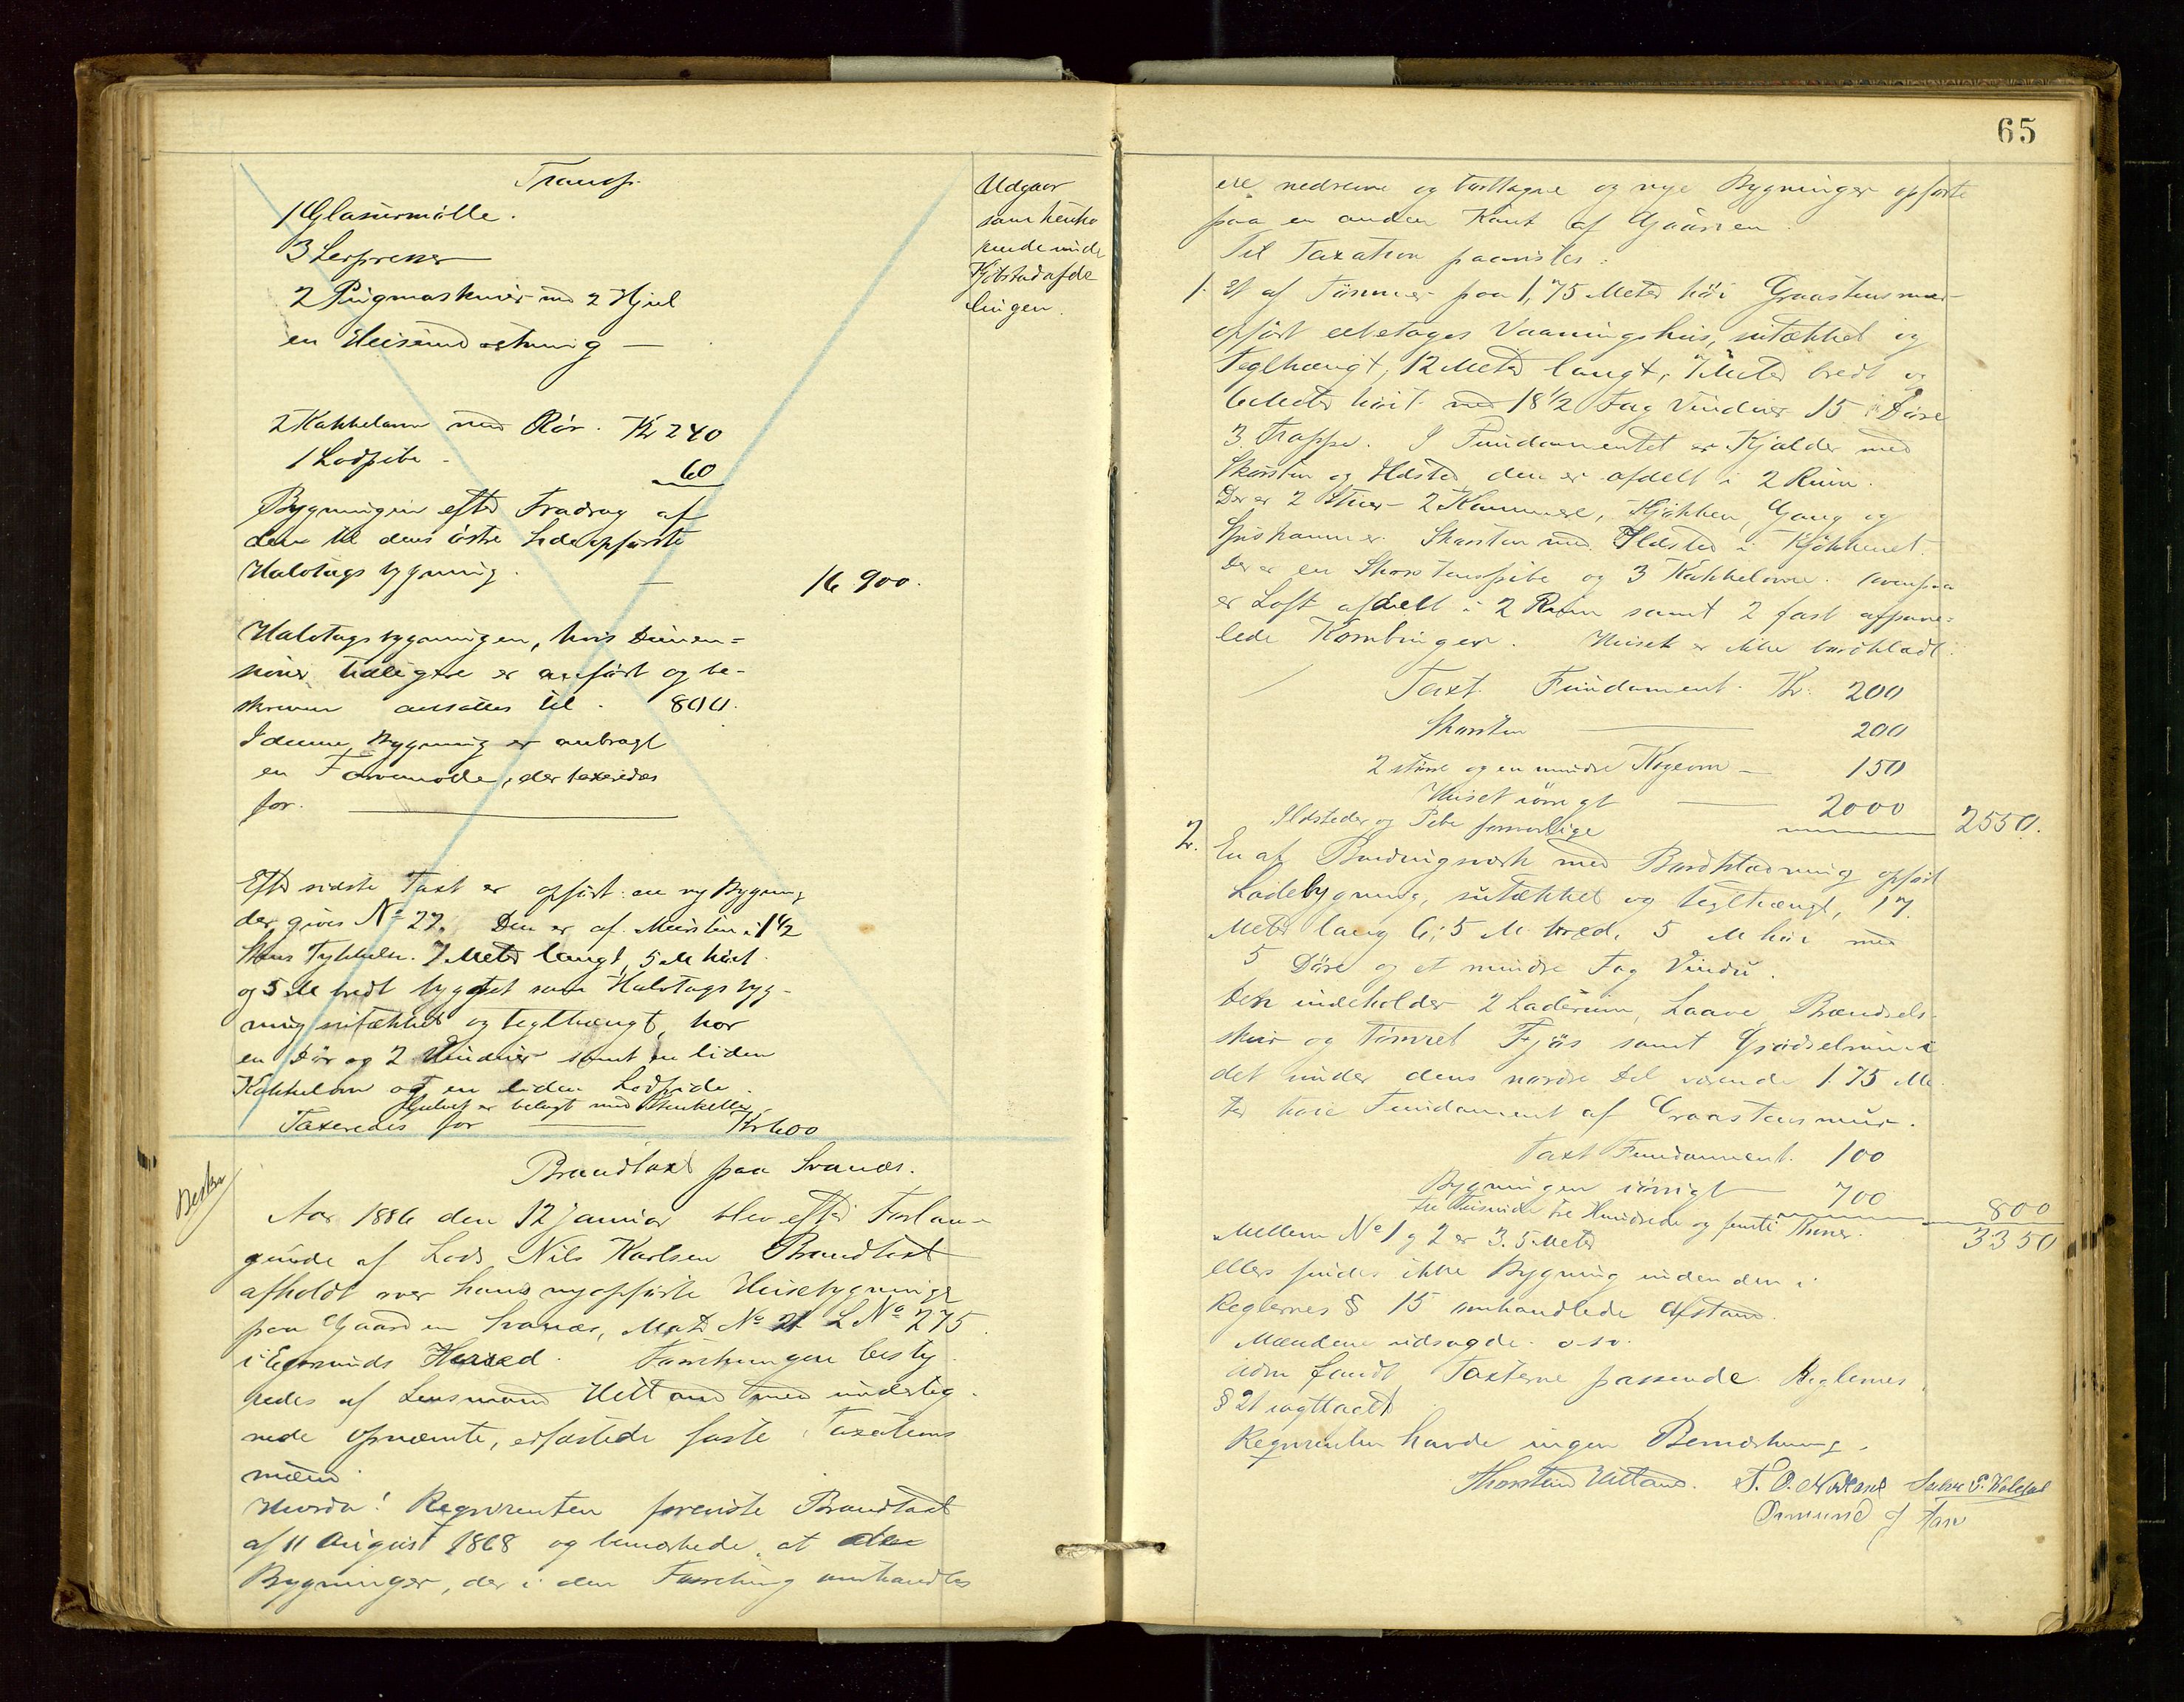 Transp.
1 Glasurmølle.
3 Lerpresser
2 Pugmaskiner med 2 Hjul
en Heiseindretning —
2 Kakkelovne med Rør. Kr 240
1 Lodpibe - 60
Bygningen efter Fradrag af
den til dens østre Side opførte
Halvtagsbygning. — 16 900.
Halvtagsbygningen, hvis Dimen=
sioner tidligere er anført og be-
skreven ansættes til . 800.
I denne Bygning er anbragt
en Farvemølle, der taxeredes
for.
Udgaar
som henhø
rende under
Kjøbstadafde
lingen.
Efter sidste Taxt er opført en ny Bygning
der gives No 22. Den er af Mursten i 1 1/2
Stens Tykkelse. 7 Meter langt, 5 M høit
og 5 M bredt bygget som Halvtagsbyg-
ning sutækket og teglhængt, har
en Dør og 2 Vinduer samt en liden
Kakkelovn og en liden Lodpibe.
Gulvet er belagt med Stenheller
Taxeredes for Kr 600
Brandtaxt paa Svanæs.
Aar 1886 den 12 Januar blev efter Forlan-
gende af Lods Nils Karlsen Brandtaxt
afholdt over hans nyopførte Husebygninger
paa Gaarden Svanæs, Matr No 21 L No 275
i Egersunds Herred. Forretningen besty-
redes af Lensmand Uelland med underteg-
nede opnævnte, edfæstede faste Taxations
mænd.
Hvorda! Requirenten foreviste Brandtaxt
af 11 August 1868 og bemærkede, at de
Bygninger, der i den Forretning omhandles
65
ere nedrevne og borttagne og nye Bygninger opførte
paa en anden Kant af Gaarden.
Til Taxation paavistes:
1. Et af Tømmer paa 1,75 Meter høi Graastensmur
opført eetetages Vaaningshus, sutækket og
Teglhængt, 12 Meter langt, 7 Meter bredt og
6 Meter høit med 18 1/2 Fag Vinduer 15 Døre
3 Trapper. I Fundamentet er Kjælder med
Skorsten og Ildsted den er afdelt i 2 Rum.
Der er 2 Stuer - 2 Kammere, Kjøkken, Gang og
Spiskammer. Skorsten med Ildsted i Kjøkkenet.
Der er en Skorstenspibe og 3 Kakkelovne. Ovenpaa
er Loft afdelt i 2 Rum samt 2 fast afpane-
lede Kornbinger. Huset er ikke bordklædt.
Taxt. Fundament. Kr. 200
Skorsten 200
2 større og en mindre Kogeovn — 150
Huset iøvrigt — 2000
Ildsteder og Pibe forsvarlige 2550.
2. En af Bindingsværk med Bordklædning opført
Ladebygning, sutækket og teglhængt, 17
Meter lang 6,5 M bred, 5 M høi med
5 Døre og et mindre Fag Vindu.
Den indeholder 2 Laderum, Laave, Brændsels-
skur og tømret Fjøs samt Gjødselrum i
det under dens nordre Del værende 1.75 Me-
ter høie Fundament af Graastensmur.
Taxt Fundament. 100
Bygningen iøvrigt — 700 800
tre Tusinde tre Hundrede og femti Kroner. 3350
Mellem No 1 og 2 er 3.5 Meter
ellers findes ikke Bygning inden den i
Reglernes § 15 omhandlede Afstand.
Mændene udsagde o.s.v.
fandt Taxterne passende. Reglernes
§ 21 iagttaget
Requirenten havde ingen Bemærkning.
Thorstein Uelland.